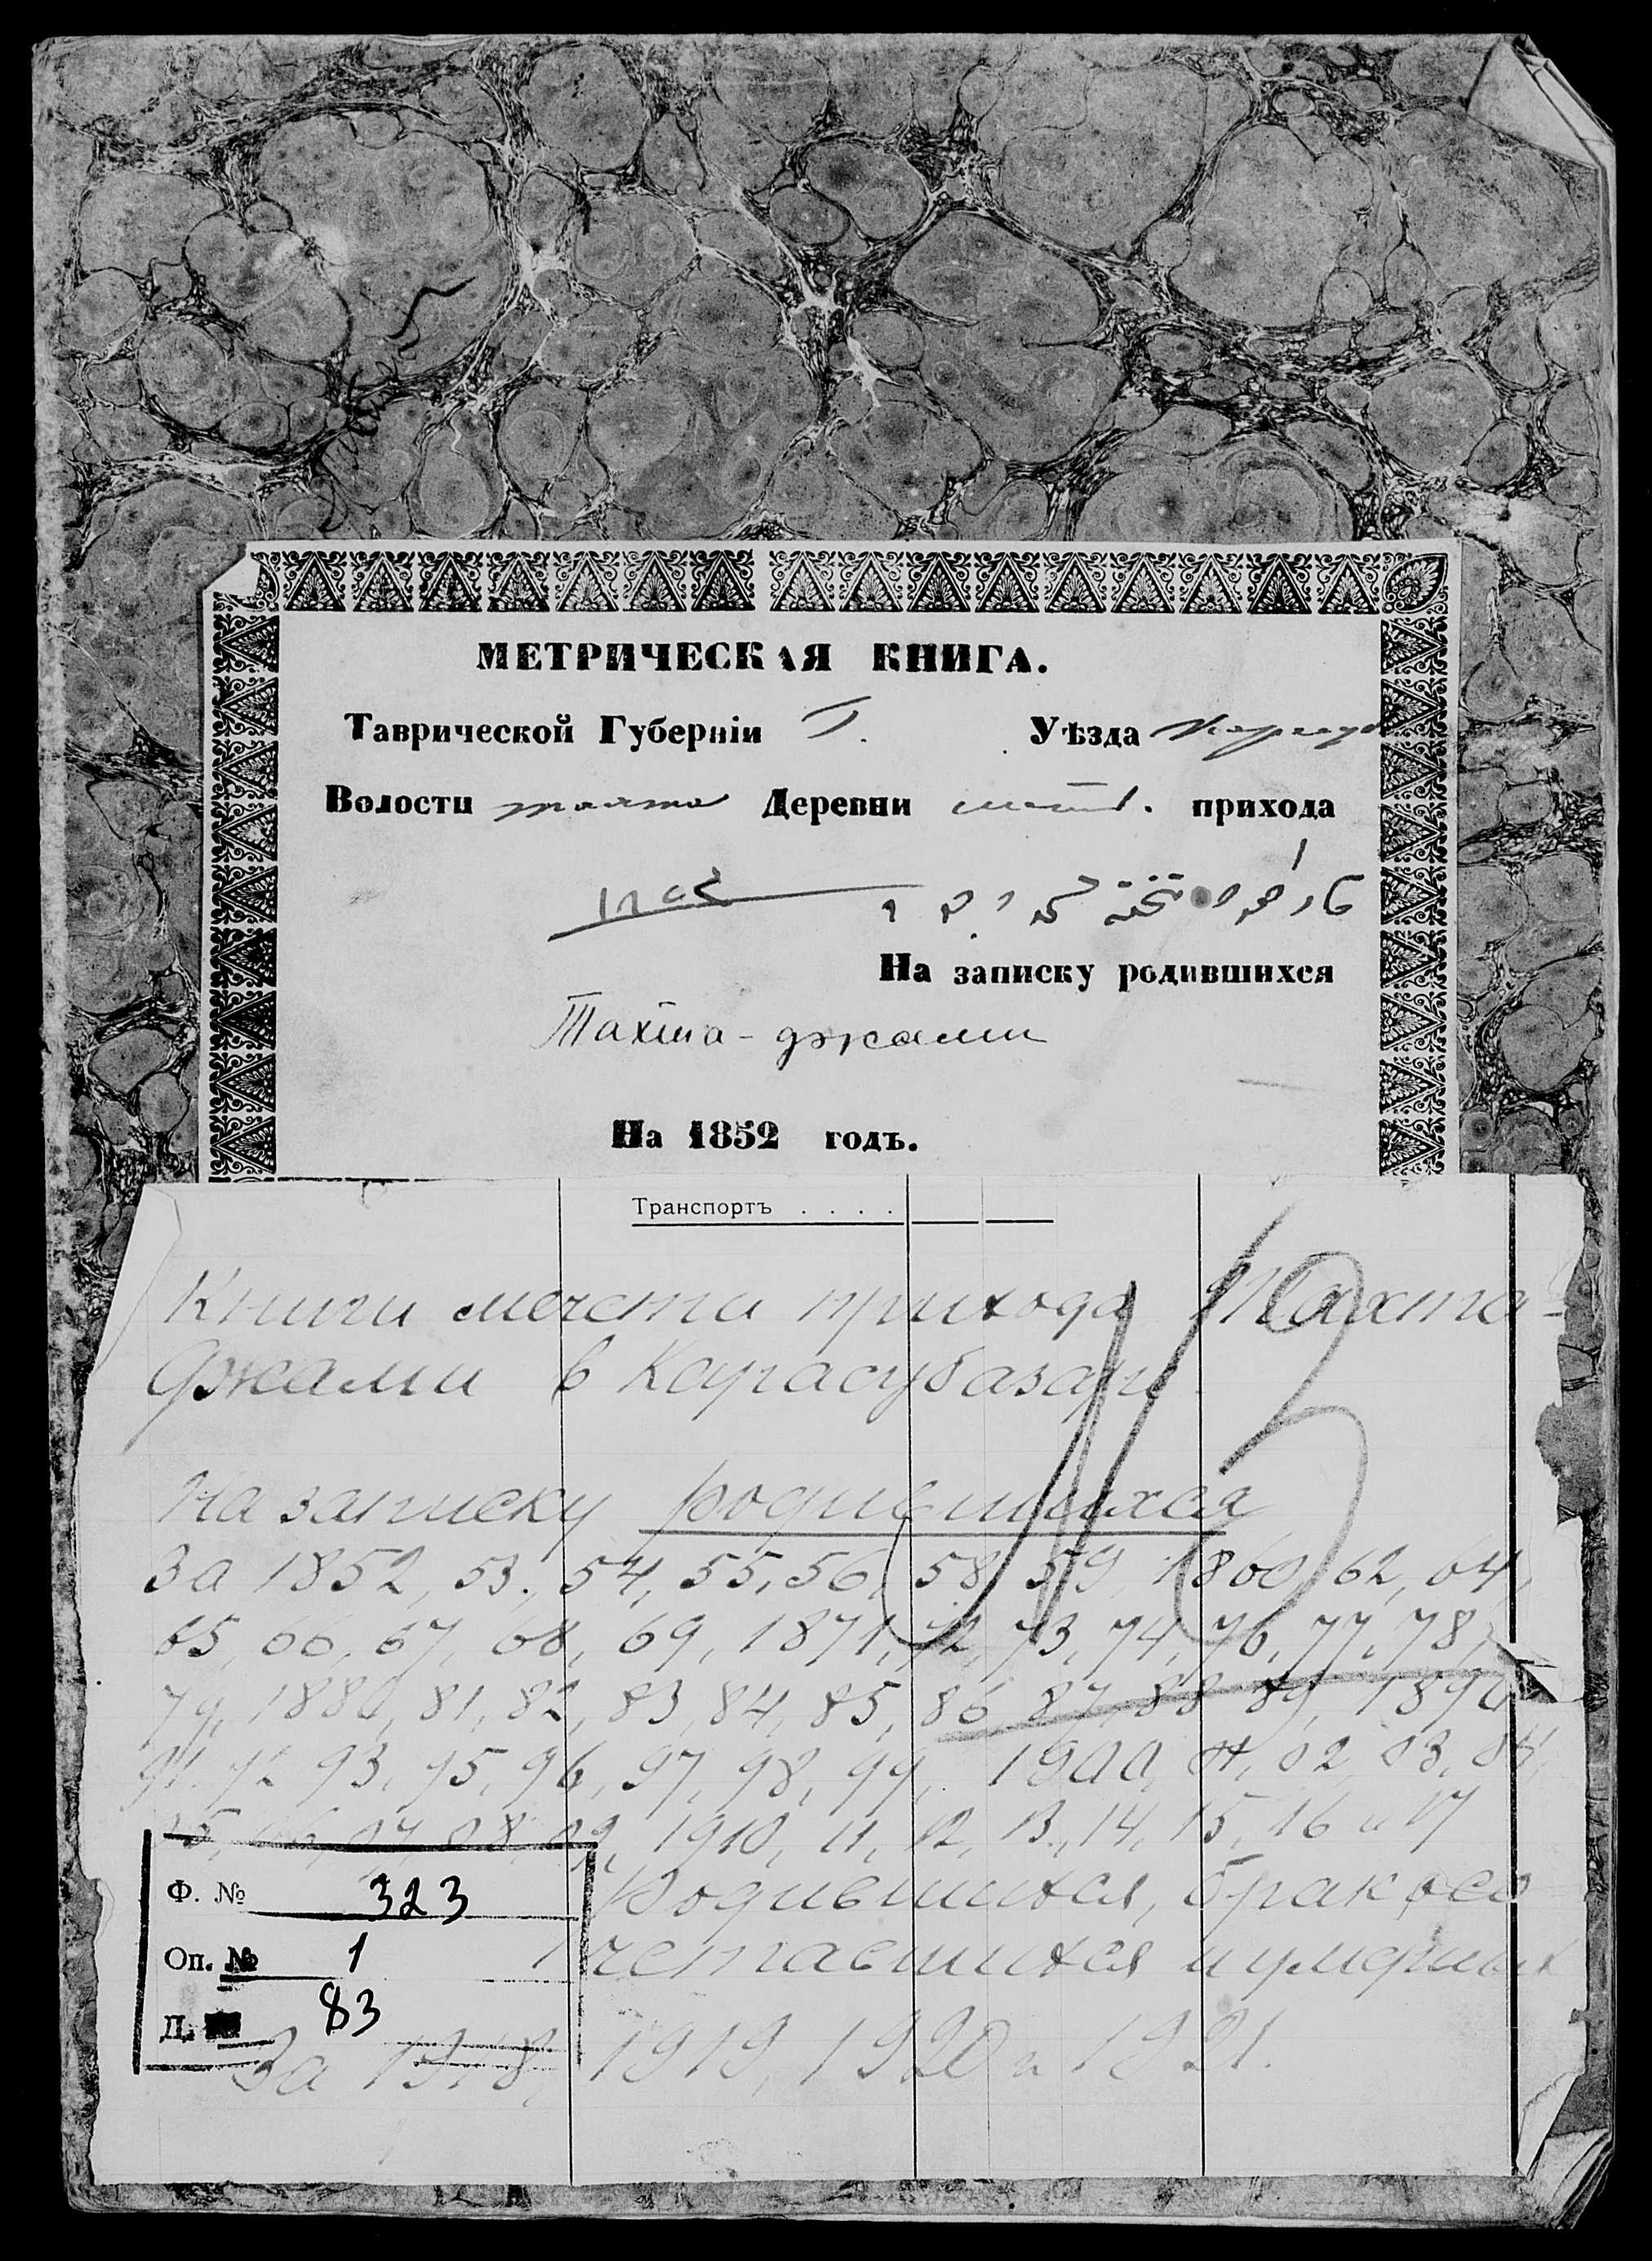 МЕТРИЧЕСКАЯ КНИГА.
Таврической Губерніи Уѣзда
Волости Деревни прихода
١٨٥٢
На записку родившихся
Тахта-джами
На 1852 годъ.
Транспортъ . . . .
Книги мечети прихода Тахта-
Джами в Карасубазаре
№ 13
На записку родившихся
За 1852, 53, 54, 55, 56, 58, 59, 1860, 62, 64,
65, 66, 67, 68, 69, 1871, 72, 73, 74, 76, 77, 78,
79, 1880, 81, 82, 83, 84, 85, 86 87, 88 89, 1890
91. 92 93, 95, 96, 97, 98, 99, 1900, 01, 02, 03, 04,
05, 06, 07, 08, 09, 1910, 11, 12, 13, 14, 15, 16 и 17
Родившихся, бракосо
четавшихся и умерших
За 1918, 1919, 1920 и 1921.
Ф. № 323
Оп. № 1
Д. 83